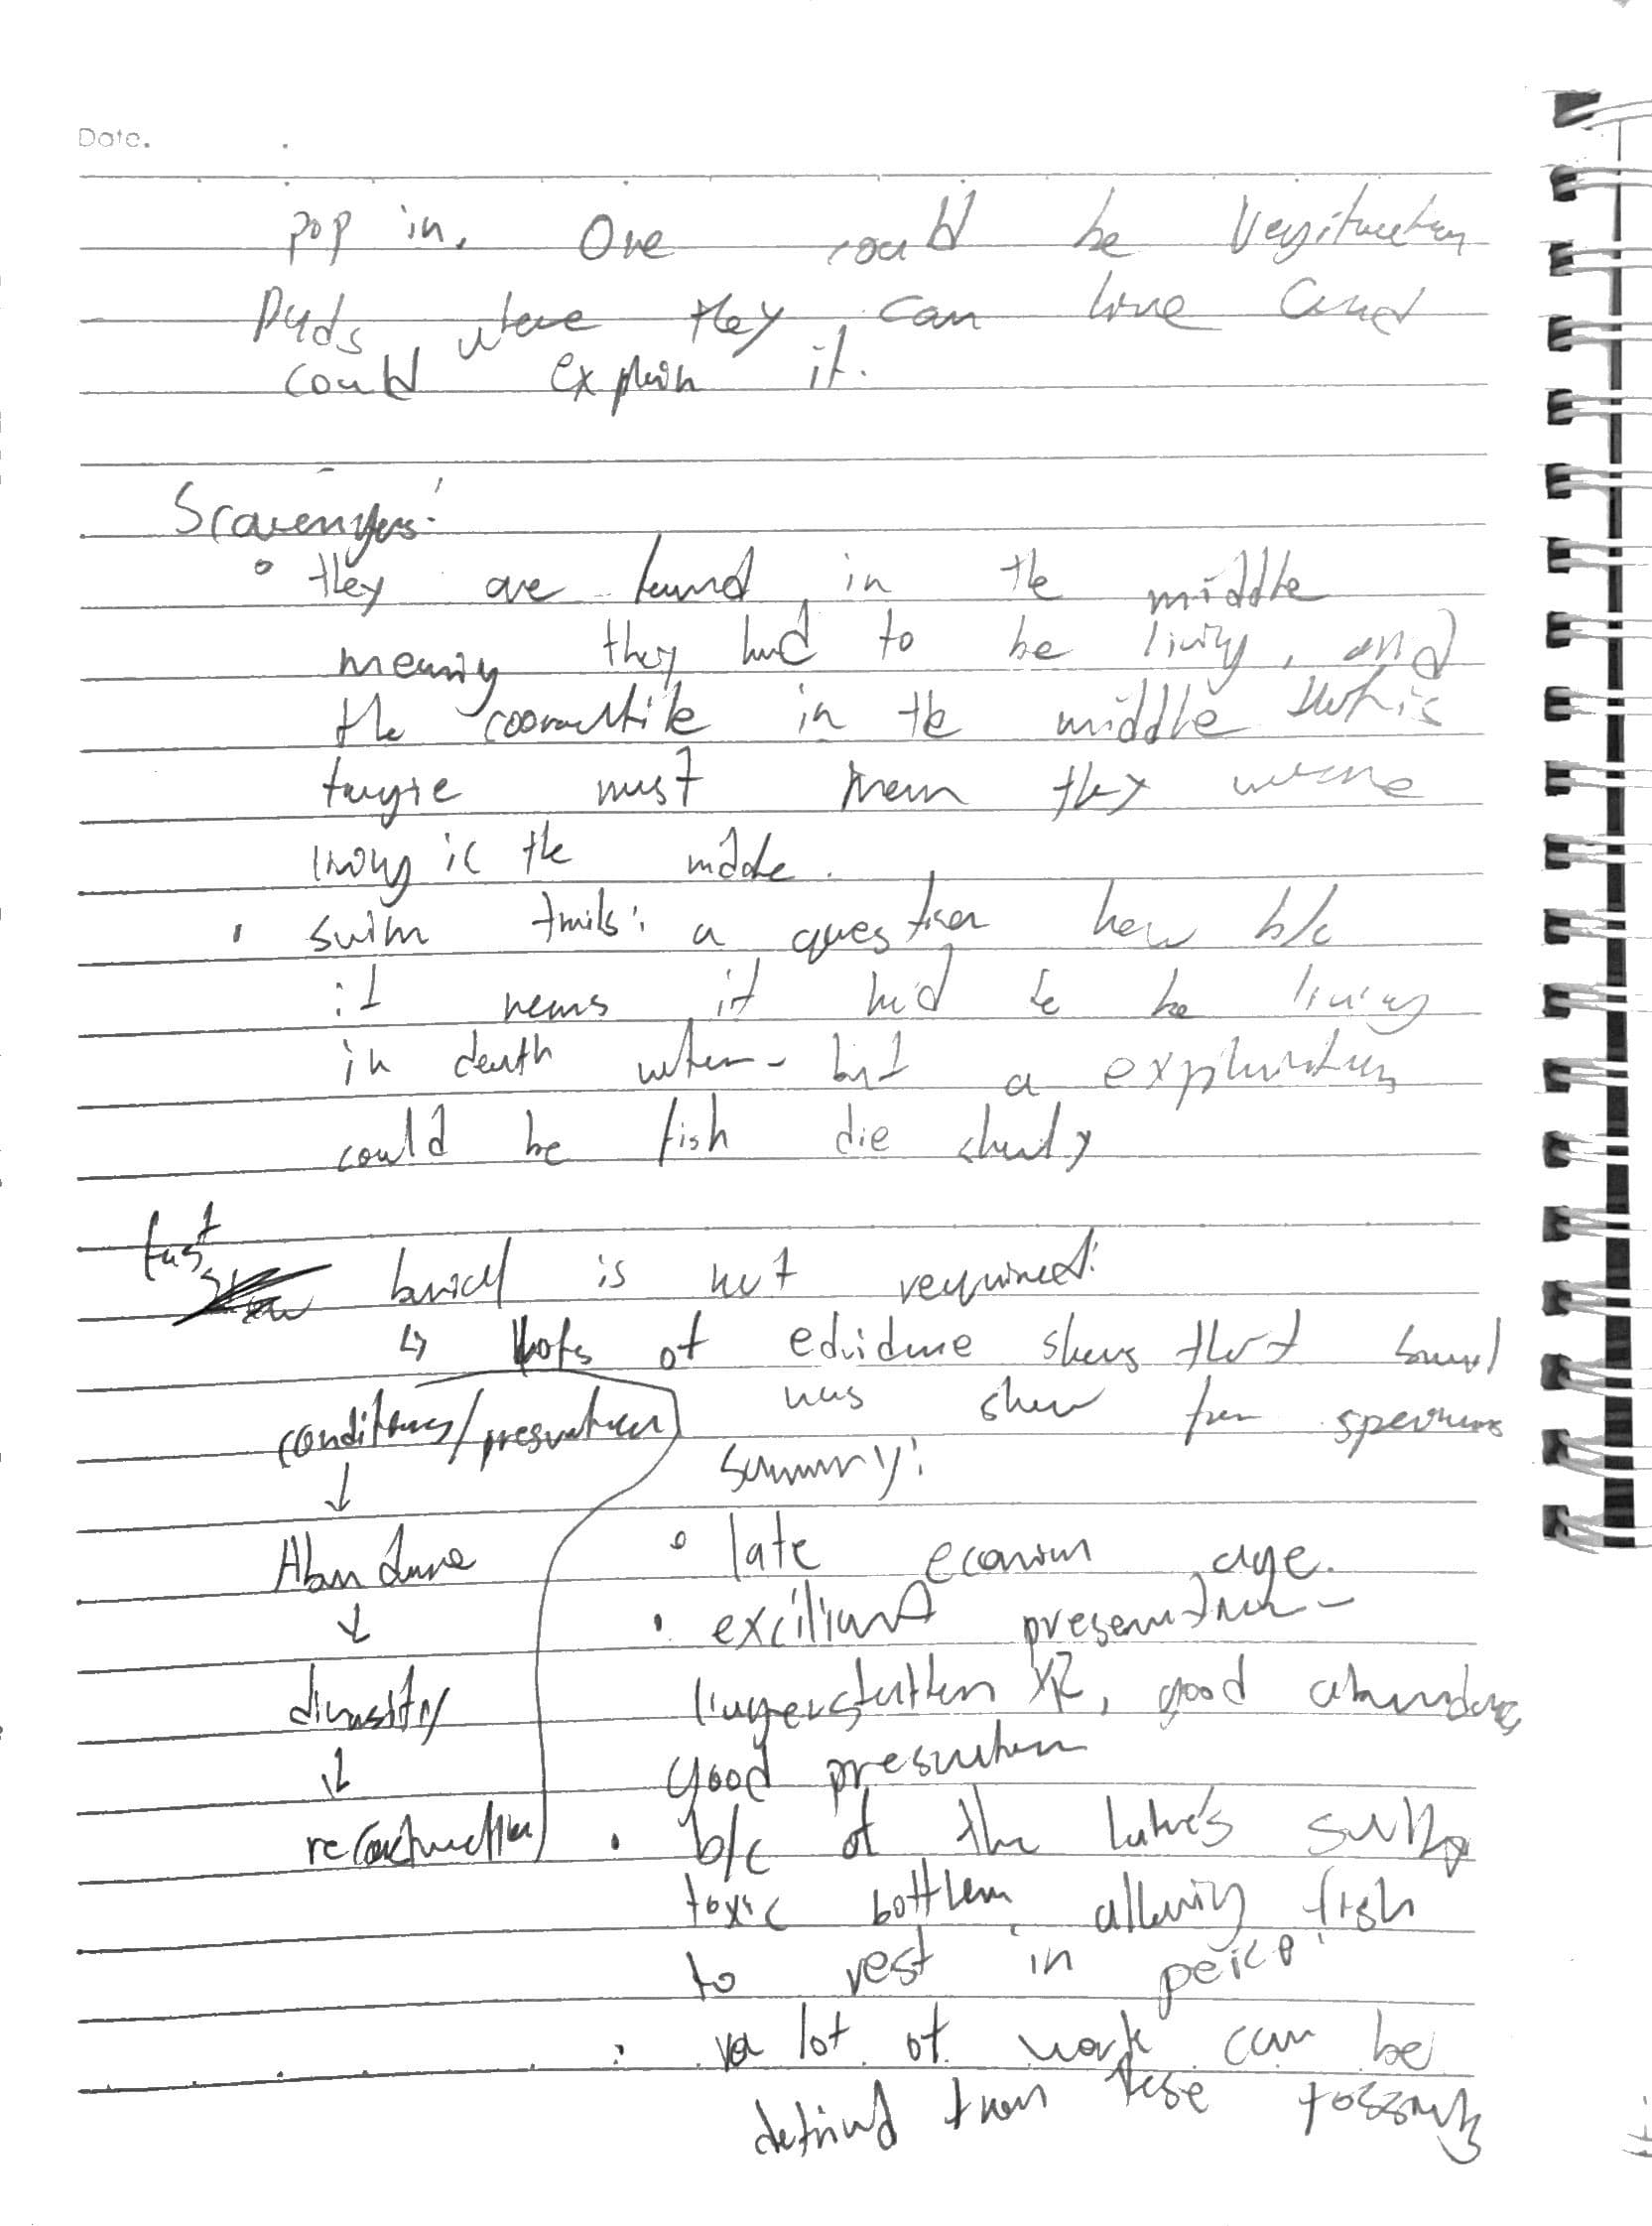 Date.
pop in. One could be Vegitation
Pads where they can live and
could explain it.
Scavengers:
• they are found in the middle
meaning they had to be living, and
the in the middle
must mean they were
living in the middle.
• swim trails: a question here b/c
it means it had to be living
in death water - but a explanation
could be fish die slowly
fast
burial is not required:
↳ lots of edvidence shows that burial
was slow for specimens
conditions/preservation
↓
Abundance
↓
diversity
↓
reconstruction
Summary:
• late age.
• excilliant preservation -
lagerstatten, good abundance,
good preservation
• b/c of the lake's
toxic bottlem, allowing fish
to rest in peice.
• a lot of work can be
from these fossils